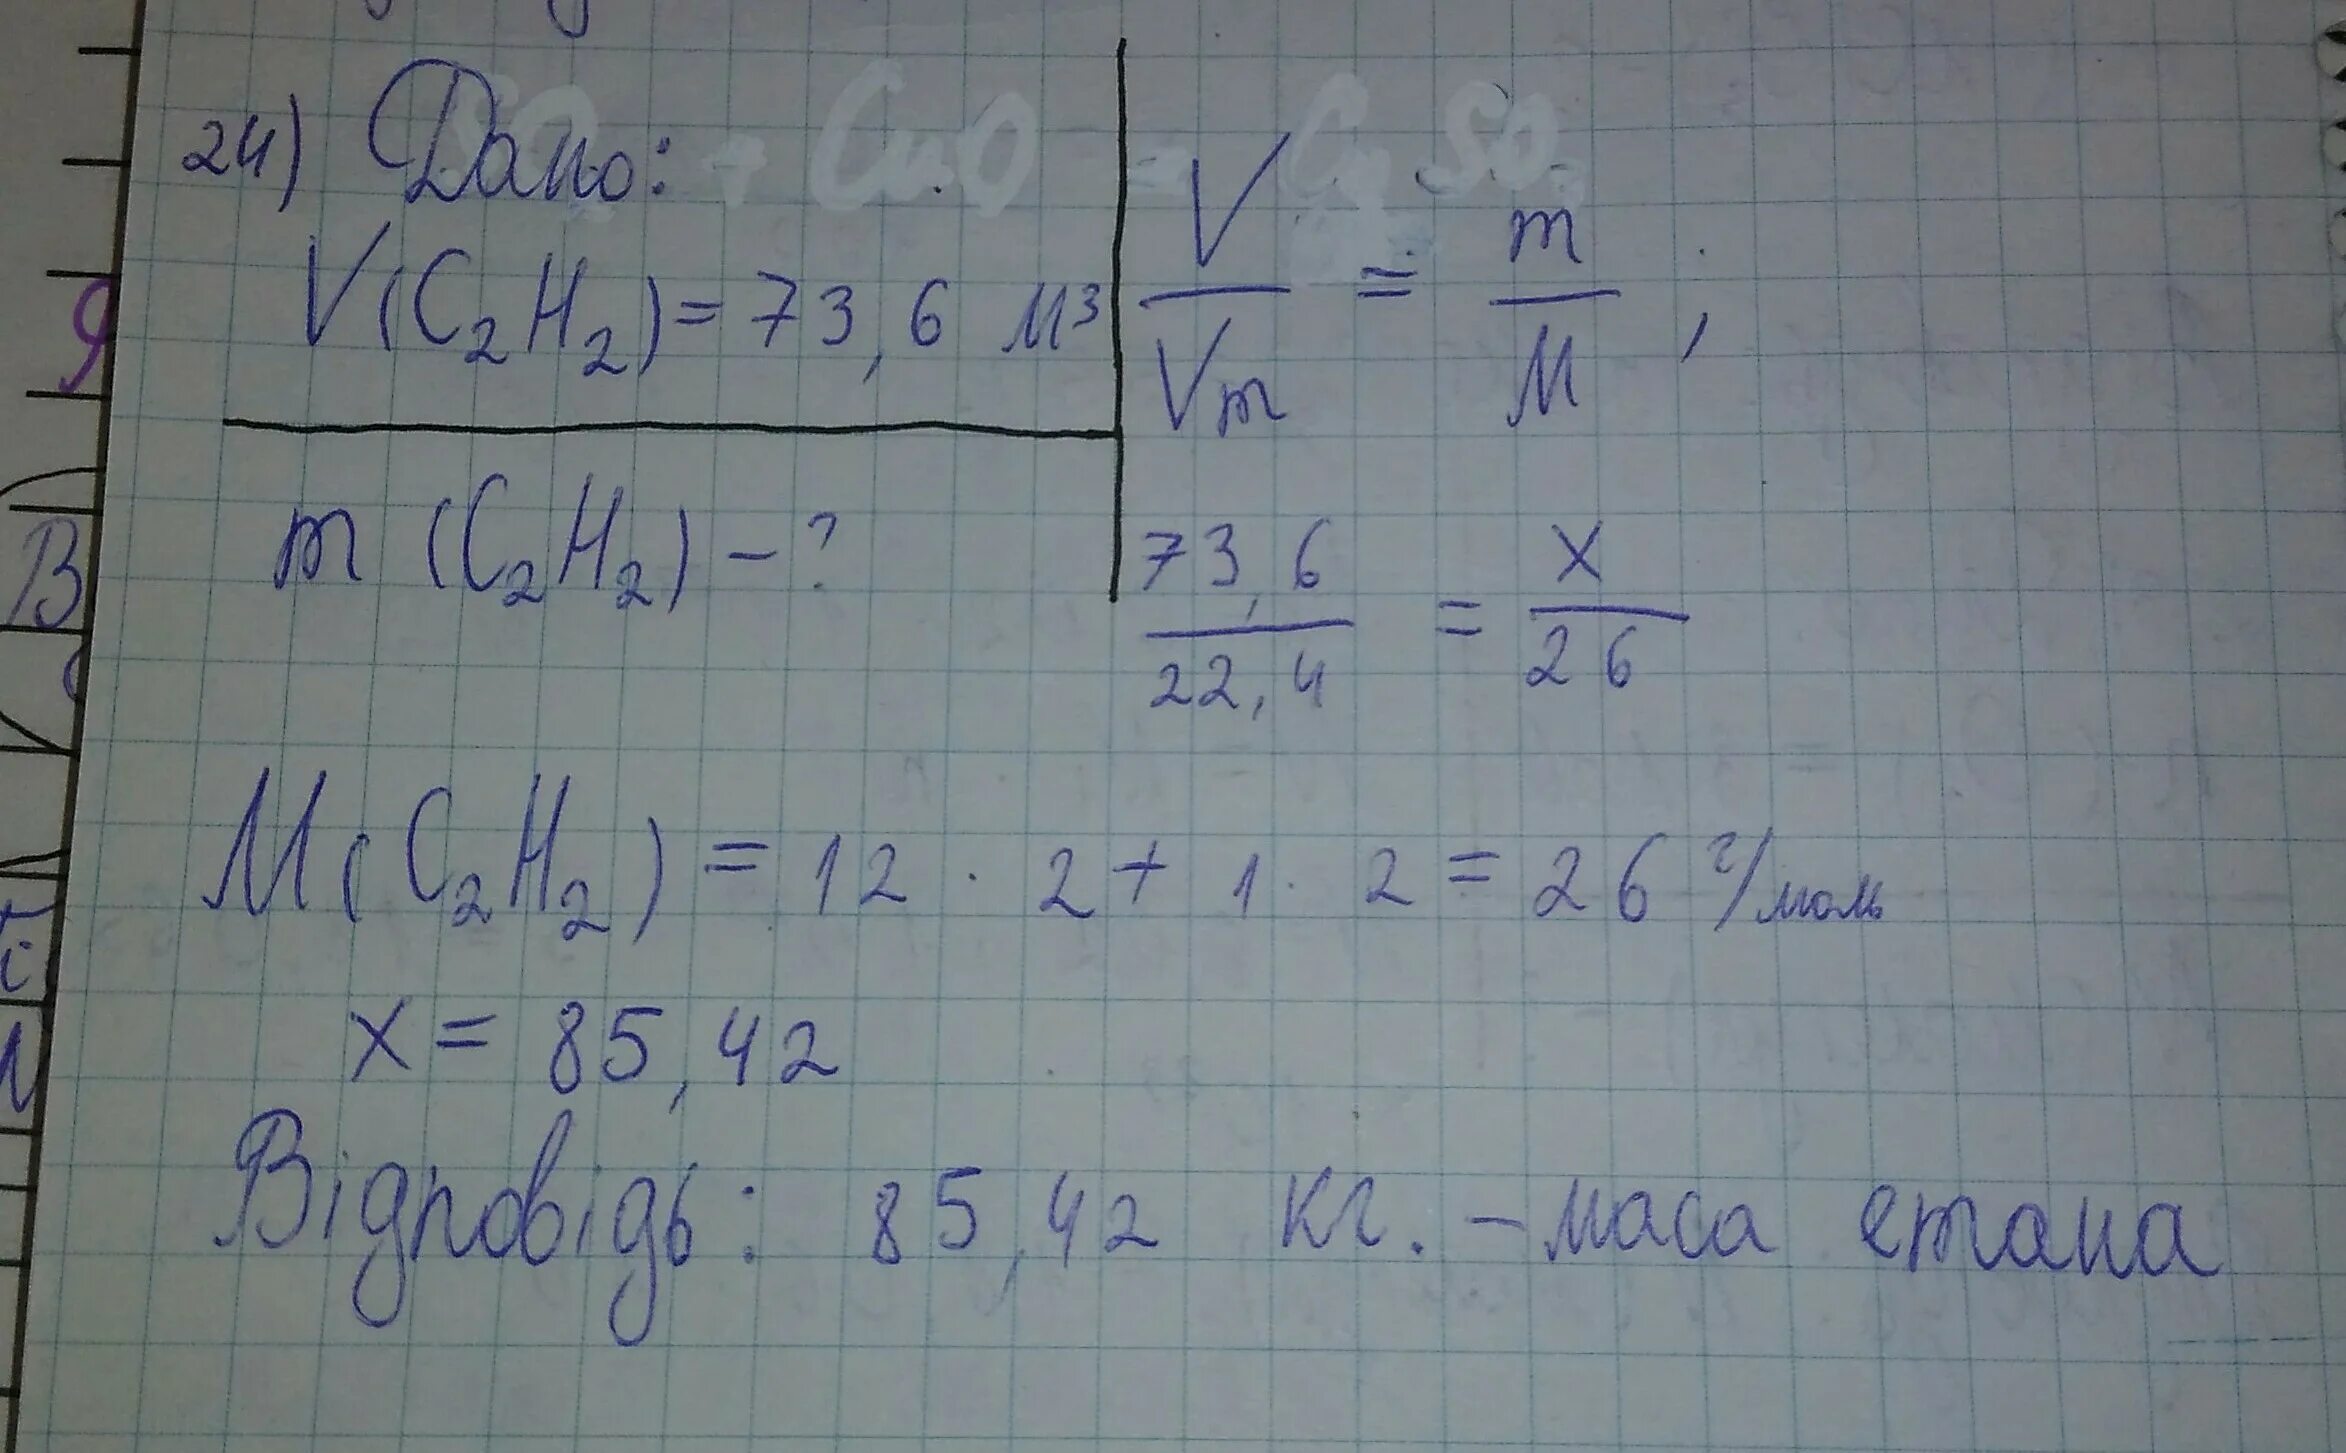 24) Дано:
V(C₂H₂)=73,6 м³
m (C₂H₂) – ?
V/Vm = m/M ;
73,6/22,4 = x/26
M(C₂H₂) = 12 · 2 + 1 · 2 = 26 г/моль
x = 85,42
Відповідь: 85,42 кг. – маса етана